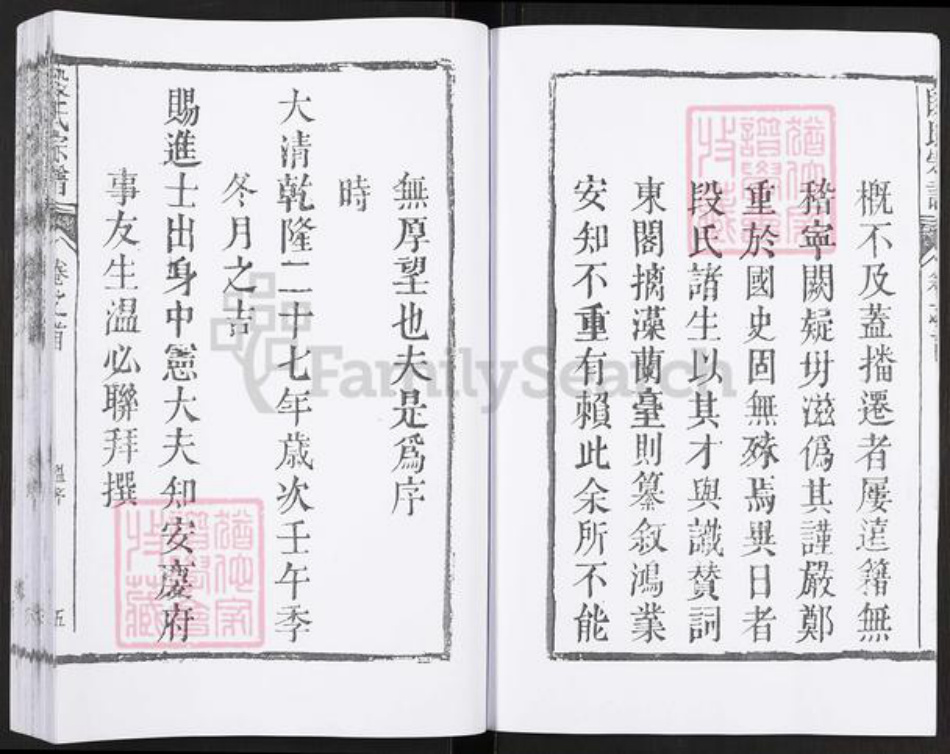 概不及蓋播遷者屢遠籍無
稽寧闕疑毋滋僞其謹嚴鄭
重於國史固無殊焉異日者
段氏諸生以其才與識贊詞
東閣摛藻蘭臺則纂叙鴻業
安知不重有賴此余所不能
無厚望也夫是爲序
時
大清乾隆二十七年歲次壬午季
冬月之吉
賜進士出身中憲大夫知安慶府
事友生温必聯拜撰
段氏宗譜
卷之首
温序
五
FamilySearch